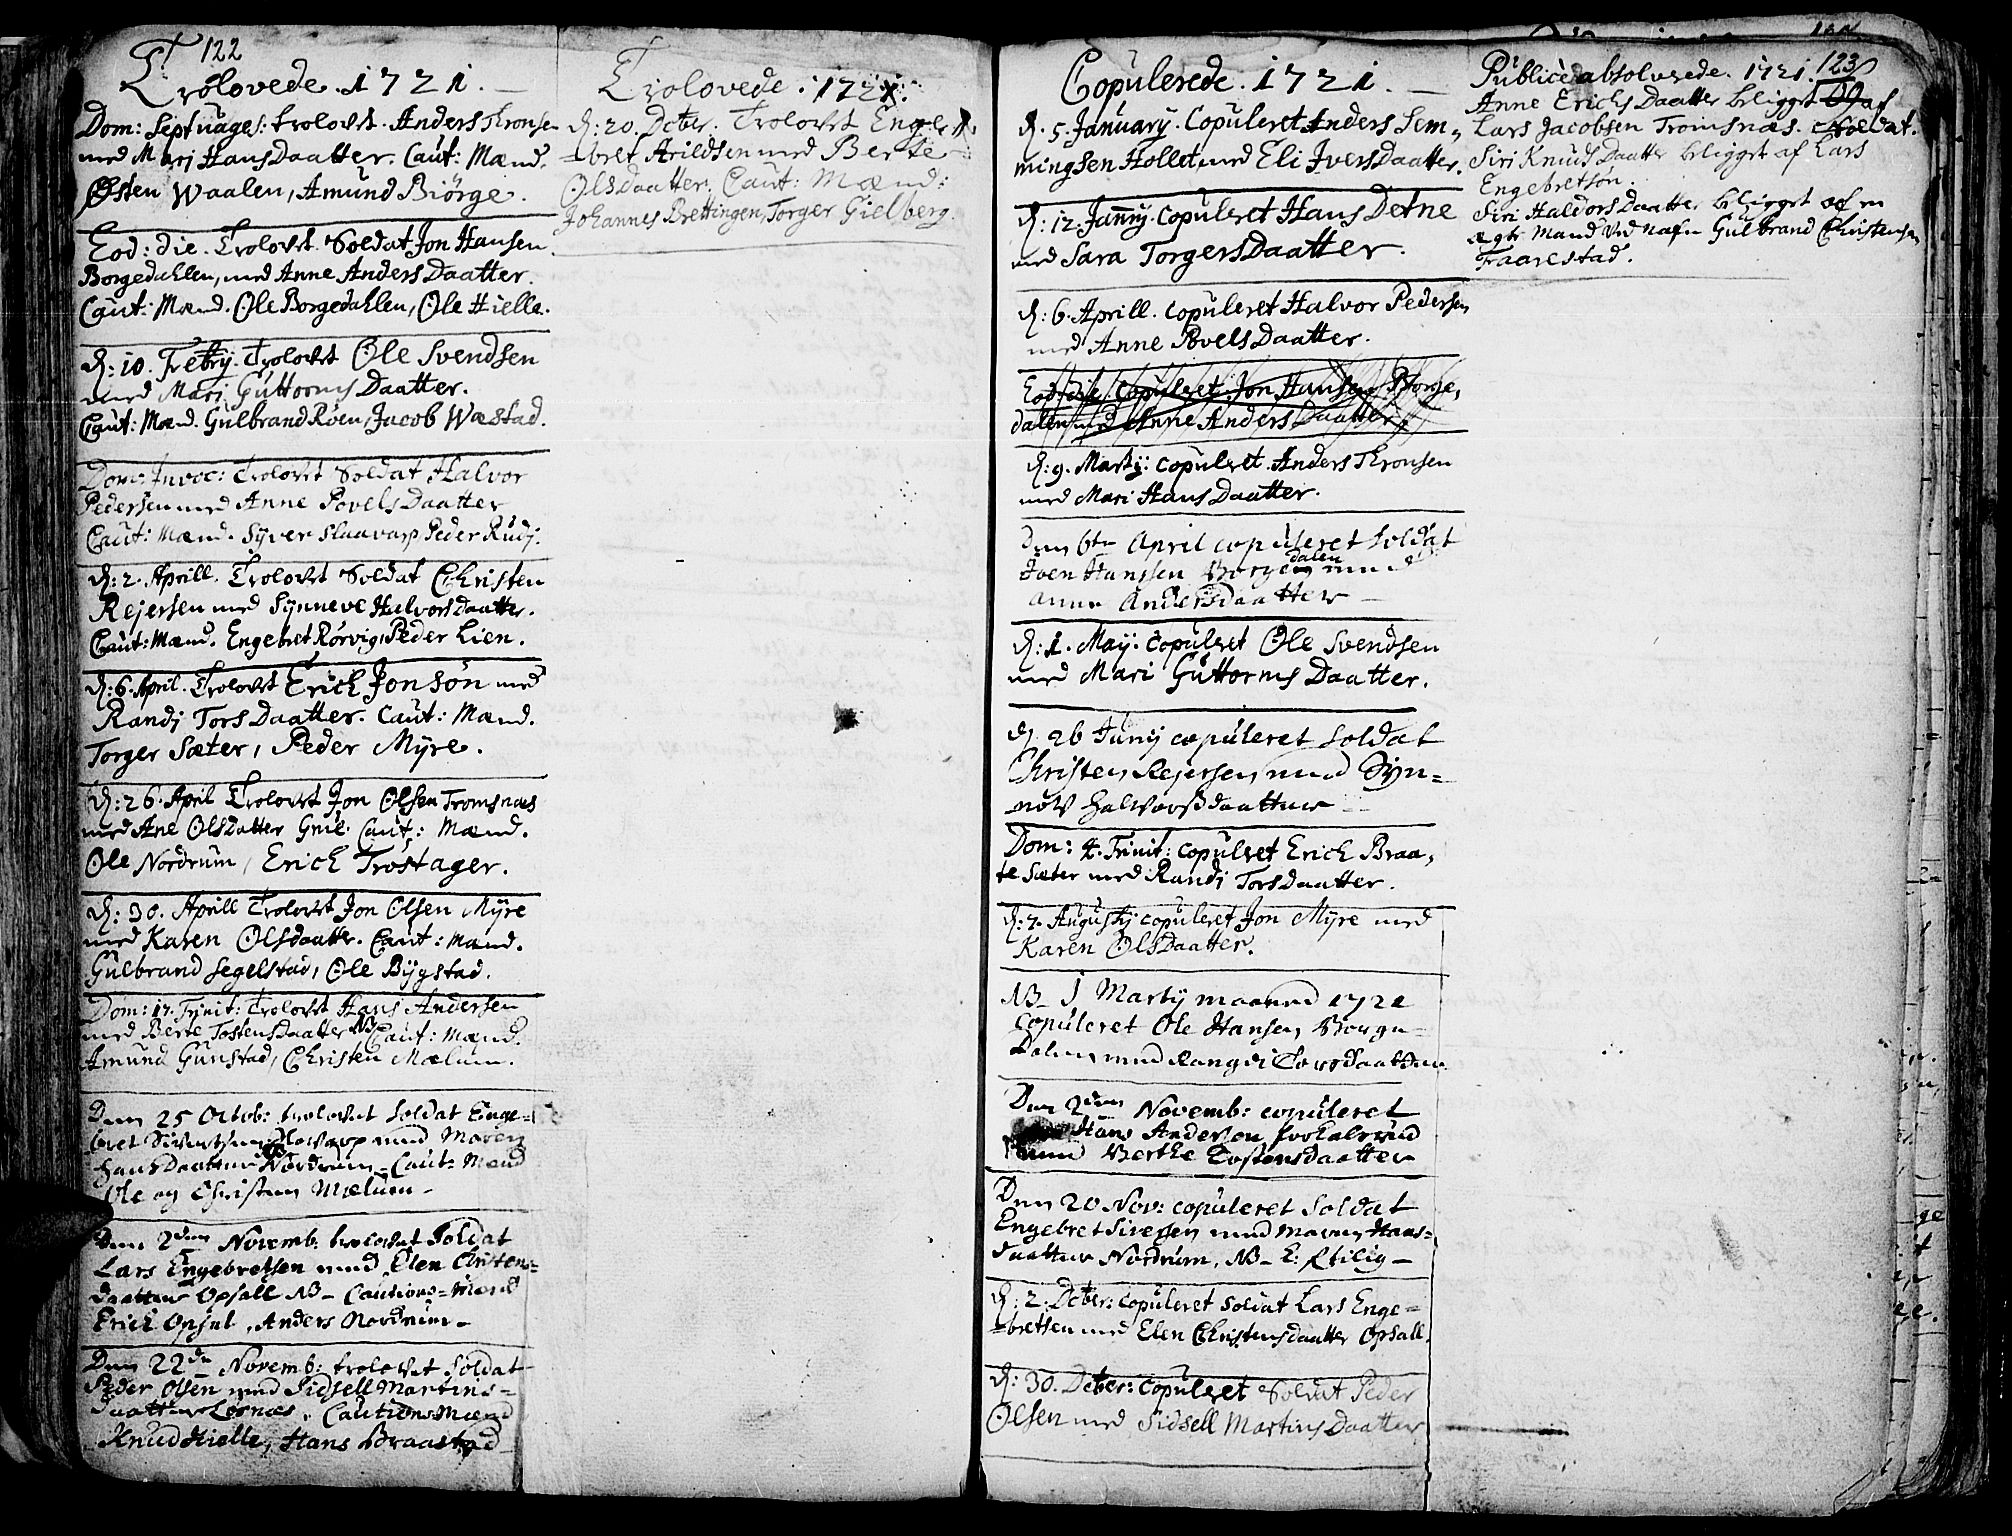 122
Trolovede. 1721.
Dom: Septuages: trolovet. Anders Thronsen
med Mari HansDaatter. Caut: Mænd.
Østen Waalen, Amund Biörge.
Eod: die. Trolovet Soldat Jon Hansen
Borgedahlen, med Anne AndersDaatter.
Caut: Mænd. Ole Borgedahlen, Ole Hielle.
d: 10. Febry. Trolovet Ole Svendsen
med Mari GuttormsDaatter.
Caut: Mænd. Gulbrand Röen, Jacob Wæstad.
Dom: Invoc: Trolovet Soldat Halvor
Pedersen med Anne PovelsDaatter
Caut: Mænd. Syver Slaavarp, Peder Rudj.
d: 2. Aprill. Trolovet Soldat Christen
Rejersen med Synneve HalvorsDaatter.
Caut: Mænd. Engebret Rörvig, Peder Lien.
d: 6. April. Trolovet Erich Jonsön med
Randj TorsDaatter. Caut: Mænd.
Torger Sæter, Peder Myre.
d: 26. April Trolovet Jon Olsen Tromsnæs
med Ane OlsDatter Caut: Mænd.
Ole Nordrum, Erich Trostager.
d: 30. Aprill Trolovet Jon Olsen Myre
med Karen Olsdaatter. Caut: Mænd.
Gulbrand Segelstad, Ole Bygstad.
Dom: 17. Trinit: Trolovet Hans Andersen
med Berte TostensDaatter NB Caut: Mænd.
Amund Gunstad, Christen Mælum.
Den 25 Octob: trolovet Soldat Enge-
bret Sivertsen med Maren
Hansdaatter Nordrum - Caut: Mænd
Ole og Christen Mælum -
Den 2den Novemb: trolovet Soldat
Lars Engebretsen med Elen Christens-
daatter Opsall NB - Cautions-Mænd
Erich Opsal, Anders Nordrum -
Den 22de Novemb: trolovet Soldat
Peder Olsen med Sidsell Martins-
daatter Cautions Mænd
Knud Hielle, Hans Braastad
Trolovede. 1721.
d: 20. Dcber. Trolovet Enge-
-bret Arildsen med Berte
Olsdaatter. Caut: Mænd:
Johannes Brettingen, Torger Gielberg.
Copulerede. 1721.
d. 5. January. Copuleret Anders Sem-
mingsen Hollet, med Eli IversDaatter.
d: 12. Janny. copuleret Hans Detne
med Sara TorgersDaatter.
d: 6. Aprill. copuleret Halvor Pedersen
med Anne PovelsDaatter.
Eod: die copuleret Jon Hansen Borge-
dalen med Anne AndersDaatter.
d: 9. Marty: copuleret Anders Thronsen
med Mari HansDaatter.
Den 6te April copuleret Soldat
Joen Hanssen Borgedalen med
Anne Andersdaatter -
d: 1. May: copuleret Ole Svendsen
med Mari GuttormsDaatter.
d. 26 Juny copuleret Soldat
Christen Rejersen med Syn-
növ Halvorsdaatter
Dom: 4. Trinit: copuleret Erich Braa-
te Sæter med Randj TorsDaatter.
d: 7. Augusty copuleret Jon Myre med
Karen OlsDaatter.
NB - J Marty maaned 1721
copuleret Ole Hansen Borge-
Dalen med Rangdi Torsdaatter
Den 2den Novemb: copuleret
Hans Anderson
med Berthe Tostensdaatter
Den 20 Nov: copuleret Soldat
Engebret Siversen med Maren Hans-
daatter Nordrum. NB -
d: 2. Dcber: copuleret Soldat Lars Enge-
-bretsen med Elen Christensdaatter Opsall.
d: 30. Dcber: copuleret Soldat Peder
Olsen med Sidsell MartinsDaatter
123
Publicè absolverede. 1721.
Anne ErichsDaatter beligget af
Lars Jacobsen Tromsnæs. Soldat.
Siri KnudsDaatter beligget af Lars
Engebretsön.
Siri HaldorsDaatter beligget af en
ægte Mand ved nafn Gulbrand Christensen
Faarestad.